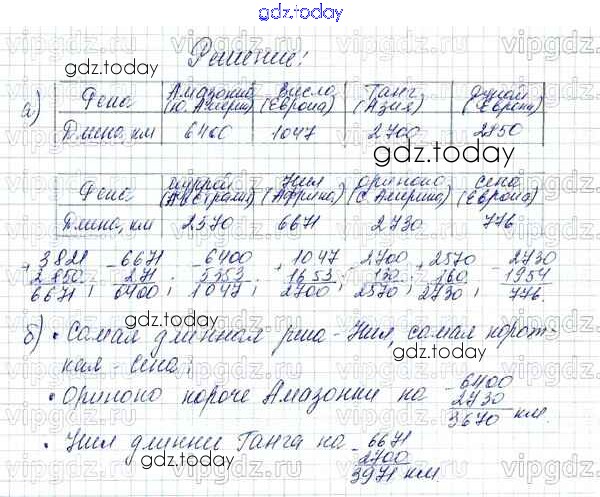 gdz.today
Решение:
а)
Река | Амазонка (Ю. Америка) | Висла (Европа) | Ганг (Азия) | Дунай (Европа)
Длина, км | 6400 | 1047 | 2700 | 2850
gdz.today
gdz.today
Река | Муррей (Австралия) | Нил (Африка) | Ориноко (С. Америка) | Сена (Европа)
Длина, км | 2570 | 6671 | 2730 | 776
+3821 -6671 -6400 +1047 -2700 +2570 -2730
2850 271 5353 1653 130 160 1954
6671; 6400; 1047; 2700; 2570; 2730; 776.
б) • Самая длинная река - Нил, самая корот-
кая - Сена;
gdz.today
• Ориноко короче Амазонки на -6400
2730
3670 км.
gdz.today
• Нил длинне Ганга на -6671
2700
3971 км.
gdz.today
gdz.today